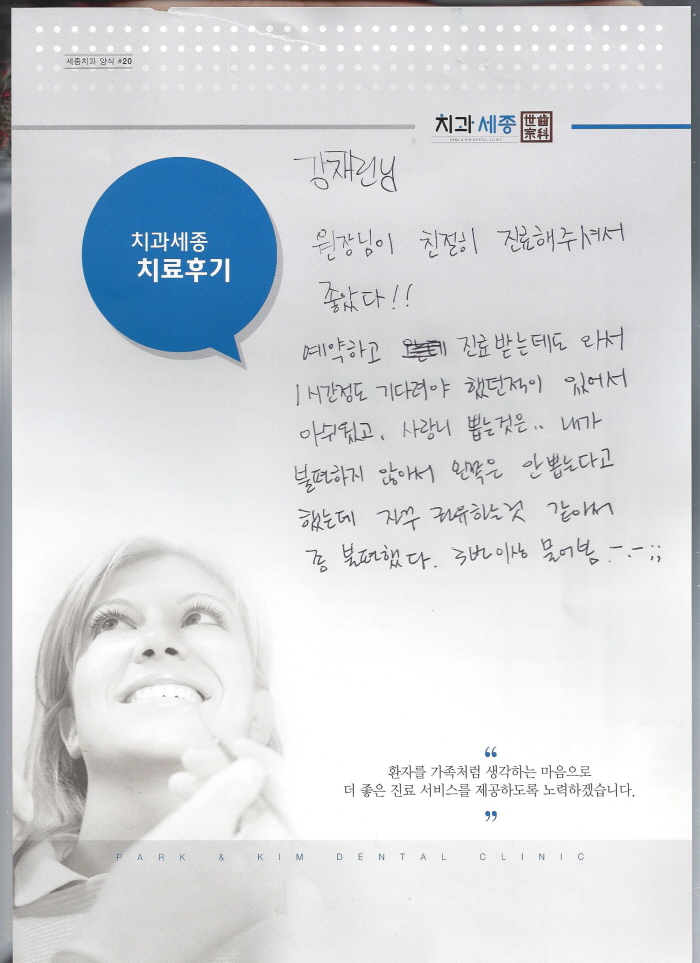 세종치과 양식 #20
치과세종 世宗齒科
PARK & KIM DENTAL CLINIC
치과세종
치료후기
강재린님
원장님이 친절히 진료해주셔서
좋았다!!
예약하고 진료받는데도 와서
1시간정도 기다려야 했던적이 있어서
아쉬웠고, 사랑니 뽑는것은.. 내가
불편하지 않아서 왼쪽은 안뽑는다고
했는데 자꾸 권유하는것 같아서
좀 불편했다. 3번이상 물어봄.-.-;;
“
환자를 가족처럼 생각하는 마음으로
더 좋은 진료 서비스를 제공하도록 노력하겠습니다.
”
PARK & KIM DENTAL CLINIC